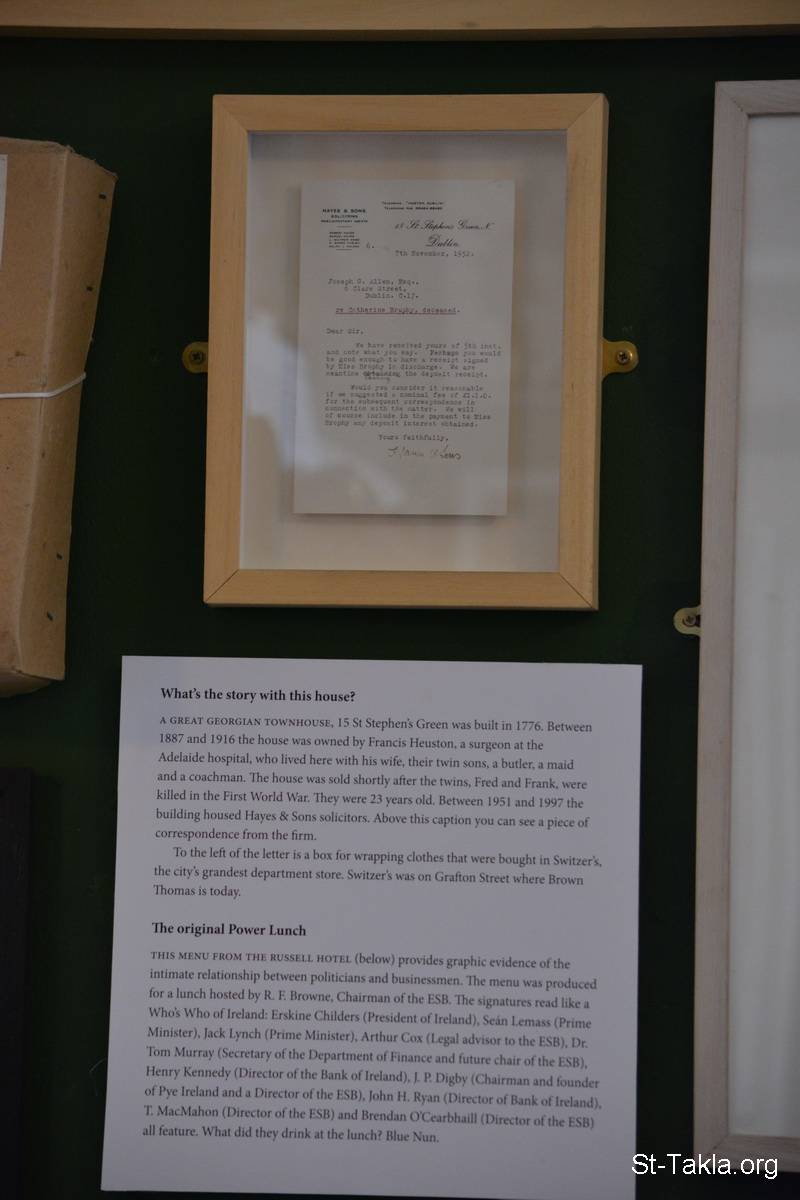 HAYES & SONS
SOLICITORS
48 St. Stephen's Green, N.
Dublin
7th November, 1952.
Joseph G. Allen, Esq.,
6 Clare Street,
Dublin. C.17.
re Catharine Brophy, deceased.
Dear Sir,
We have received yours of 5th inst.
and note what you say. Perhaps you would
be good enough to have a receipt signed
by Miss Brophy in discharge. We are
the deposit receipt.
Would you consider it reasonable
if we suggested a nominal fee of £1.1.0.
for the subsequent correspondence in
connection with the matter. We will
of course include in the payment to Miss
Brophy any deposit interest obtained.
Yours faithfully,
What's the story with this house?
A GREAT GEORGIAN TOWNHOUSE, 15 St Stephen's Green was built in 1776. Between
1887 and 1916 the house was owned by Francis Heuston, a surgeon at the
Adelaide hospital, who lived here with his wife, their twin sons, a butler, a maid
and a coachman. The house was sold shortly after the twins, Fred and Frank, were
killed in the First World War. They were 23 years old. Between 1951 and 1997 the
building housed Hayes & Sons solicitors. Above this caption you can see a piece of
correspondence from the firm.
To the left of the letter is a box for wrapping clothes that were bought in Switzer's,
the city's grandest department store. Switzer's was on Grafton Street where Brown
Thomas is today.
The original Power Lunch
THIS MENU FROM THE RUSSELL HOTEL (below) provides graphic evidence of the
intimate relationship between politicians and businessmen. The menu was produced
for a lunch hosted by R. F. Browne, Chairman of the ESB. The signatures read like a
Who's Who of Ireland: Erskine Childers (President of Ireland), Seán Lemass (Prime
Minister), Jack Lynch (Prime Minister), Arthur Cox (Legal advisor to the ESB), Dr.
Tom Murray (Secretary of the Department of Finance and future chair of the ESB),
Henry Kennedy (Director of the Bank of Ireland), J. P. Digby (Chairman and founder
of Pye Ireland and a Director of the ESB), John H. Ryan (Director of Bank of Ireland),
T. MacMahon (Director of the ESB) and Brendan O'Cearbhaill (Director of the ESB)
all feature. What did they drink at the lunch? Blue Nun.
St-Takla.org